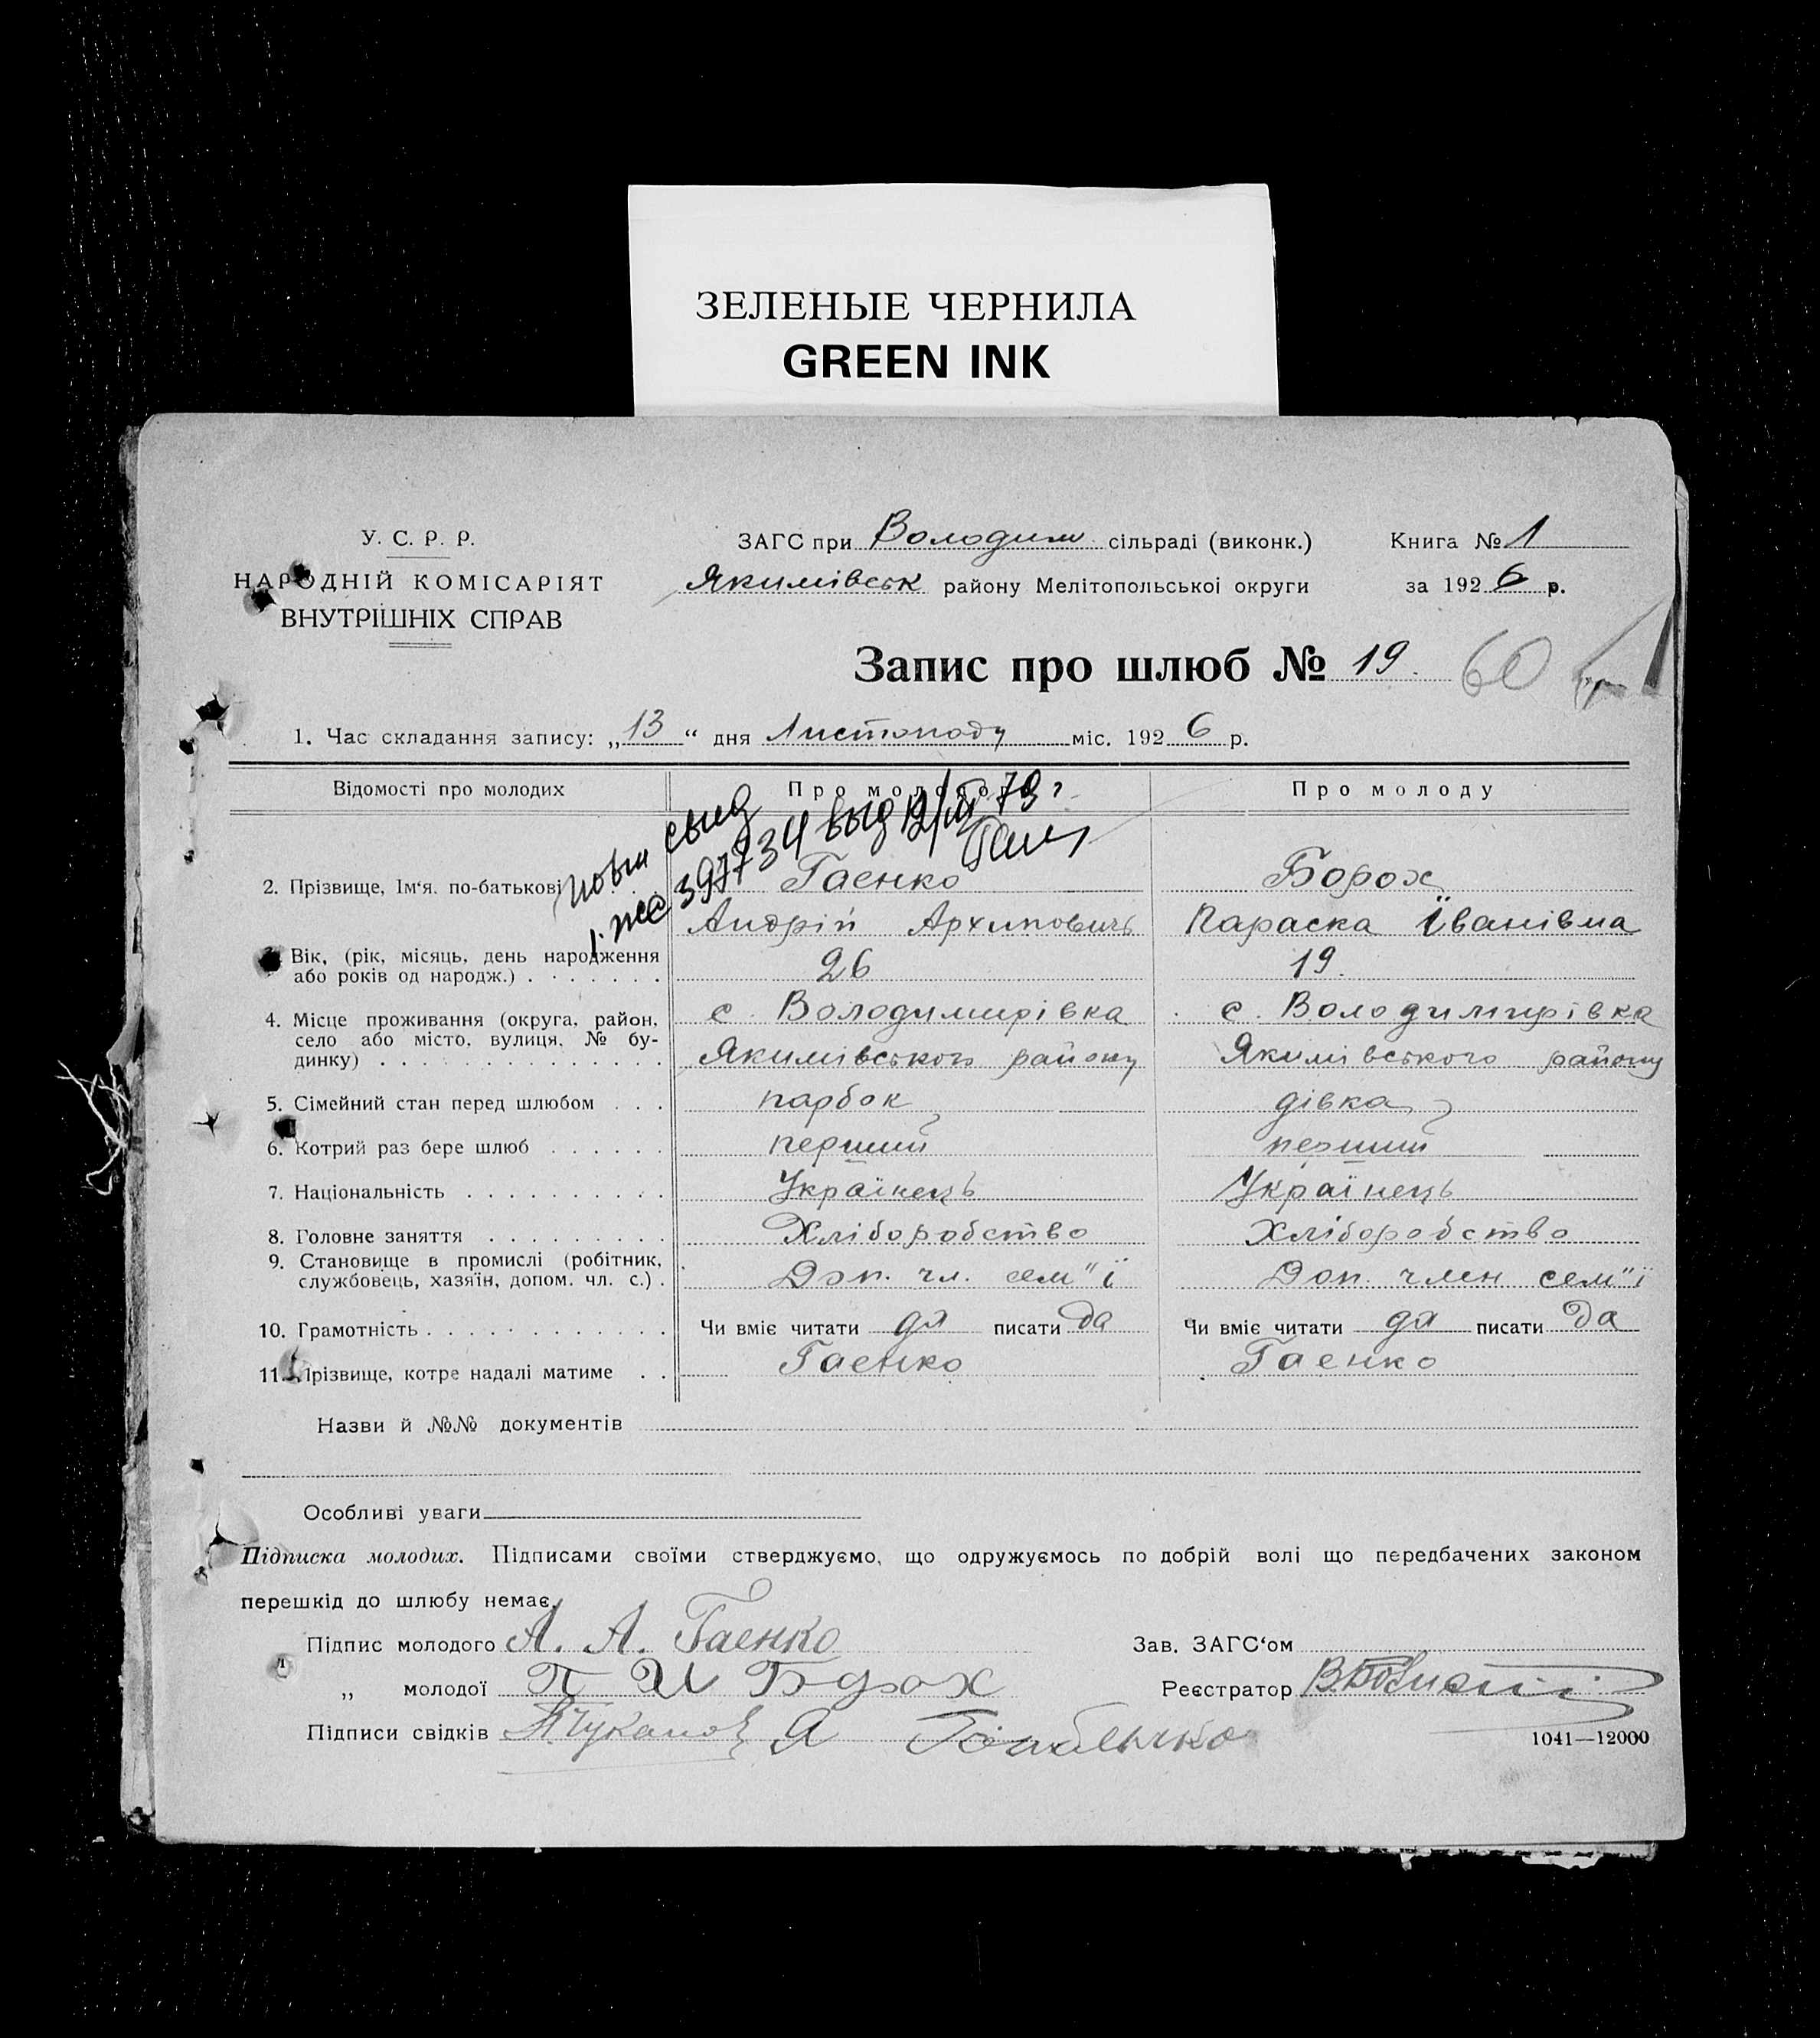 ЗЕЛЕНЫЕ ЧЕРНИЛА
GREEN INK
У. С. Р. Р.
НАРОДНІЙ КОМІСАРІЯТ
ВНУТРІШНІХ СПРАВ
ЗАГС при Володим сільраді (виконк.)
Якимівськ району Мелітопольської округи
Книга № 1
за 1926 р.
Запис про шлюб № 19. 60
1. Час складання запису: „13“ дня Листопаду міс. 1926 р.
Відомості про молодих Про молодого Про молоду
новы свид
397734 выд 12/III 79 г
2. Прізвище, Ім‘я, по-батькові Гаенко Борох
Андрій Архиповичь Параска Їванівна
3. Вік, (рік, місяць, день народження
або років од народж.) . . . . . . . 26 19.
4. Місце проживання (округа, район, с. Володимирівка с. Володимирівка
село або місто, вулиця, № бу-
динку) . . . . . . . . . . . . . . Якимівського району Якимівського району
5. Сімейний стан перед шлюбом . . . парбок дівка
6. Котрий раз бере шлюб . . . . . . перший перший
7. Національність . . . . . . . . . . Українець Українець
8. Головне заняття . . . . . . . . . Хліборобство Хліборобство
9. Становище в промислі (робітник,
службовець, хазяїн, допом. чл. с.) . Доп. чл. сем"ї Доп. член сем"ї
10. Грамотність . . . . . . . . . . . . Чи вміє читати да писати да Чи вміє читати да писати да
11. Прізвище, котре надалі матиме . . Гаенко Гаенко
Назви й №№ документів
Особливі уваги
Підписка молодих. Підписами своїми стверджуємо, що одружуємось по добрій волі що передбачених законом
перешкід до шлюбу немає.
Підпис молодого А. А. Гаенко Зав. ЗАГС‘ом
„ молодої П И Борох Реєстратор
Підписи свідків
1041—12000